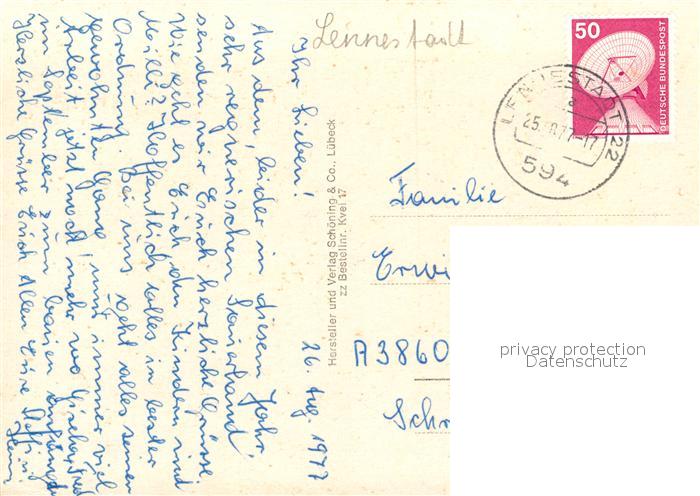 Lennestadt
50
DEUTSCHE BUNDESPOST
LENNESTADT 22
25. 8.77-17
594
26. Aug. 1977
Ihr Lieben!
Aus dem, leider in diesem Jahr,
sehr regnerischen Sauerland,
senden wir Euch herzliche Grüsse.
Wie geht es Euch den Kindern und
Milli? Hoffentlich alles in bester
Ordnung. Bei uns geht alles seinen
gewohnten Gang, und immer viel
Arbeit jetzt noch mehr wo
im September zum bauen
Herzliche Grüsse Euch Allen Eure
Hersteller und Verlag Schöning & Co., Lübeck
zz Bestellnr. Kvel 17
Familie
Erwi
A3860
Schr
privacy protection
Datenschutz